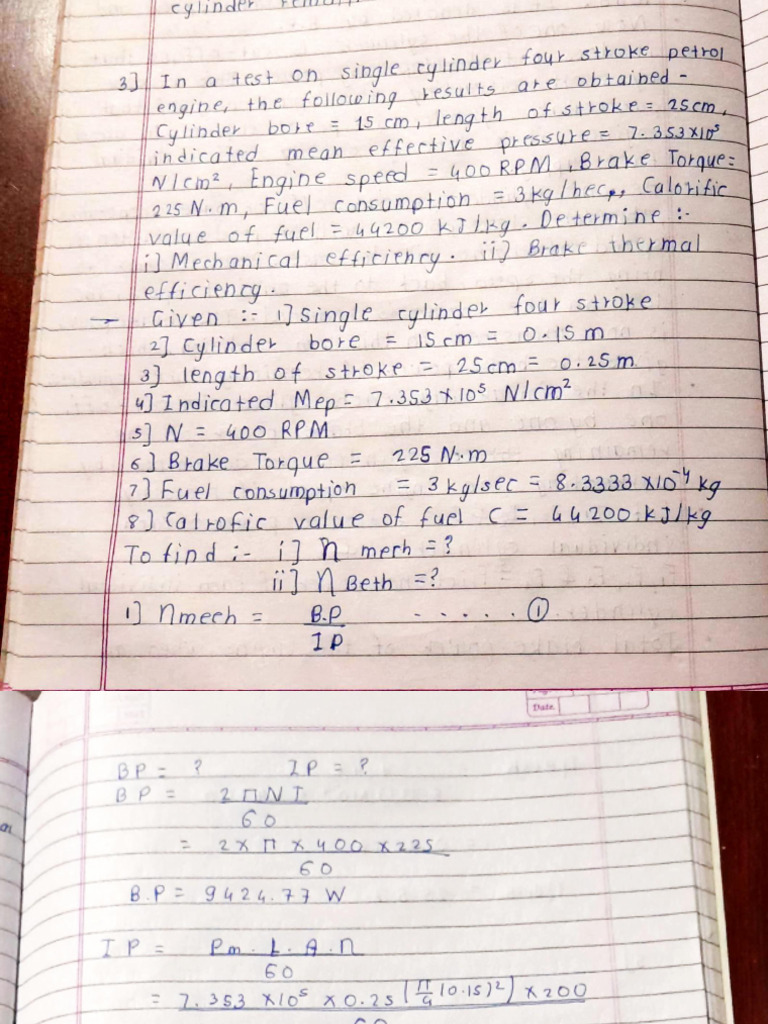 cylinder
3] In a test on single cylinder four stroke petrol
engine, the following results are obtained -
Cylinder bore = 15 cm, length of stroke = 25cm,
indicated mean effective pressure = 7.353×10⁵
N/cm², Engine speed = 400 RPM, Brake Torque =
225 N.m, Fuel consumption = 3kg/hec., Calorific
value of fuel = 44200 kJ/kg. Determine :-
i] Mechanical efficiency. ii] Brake thermal
efficiency.
→ Given :- 1] Single cylinder four stroke
2] Cylinder bore = 15 cm = 0.15 m
3] length of stroke = 25cm = 0.25 m
4] Indicated Mep = 7.353 × 10⁵ N/cm²
5] N = 400 RPM
6] Brake Torque = 225 N.m
7] Fuel consumption = 3 kg/sec = 8.3333 ×10⁻⁴ kg
8] Calrofic value of fuel C = 44200 kJ/kg
To find :- i] η mech = ?
ii] η Beth = ?
1] ηmech = B.P ...... ①
IP
Date
BP = ? IP = ?
BP = 2ΠNT
60
= 2 × Π × 400 × 225
60
B.P = 9424.77 W
IP = Pm. L. A. n
60
= 7.353 × 10⁵ × 0.25 (Π/4 (0.15)²) × 200
60